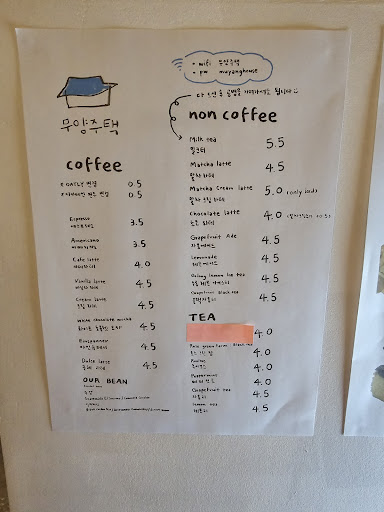 무양주택
• wifi 무양주택
• pw muyanghouse
coffee
X OATLY 변경 0.5
0.5
Espresso 3.5
에스프레소
Americano 3.5
아메리카노
Cafe latte 4.0
카페라떼
Vanilla latte 4.5
바닐라 라떼
Cream latte 4.5
크림 라떼
White chocolate mocha 4.5
화이트 초콜릿 모카
Einspanner 4.5
아인슈페너
Dolce latte 4.5
돌체 라떼
OUR BEAN
non coffee
Milk tea 5.5
밀크티
Matcha latte 4.5
말차 라떼
Matcha Cream latte 5.0 (only iced)
말차 크림 라떼
Chocolate latte 4.0
초코 라떼
Grapefruit Ade 4.5
자몽에이드
Lemonade 4.5
레몬에이드
Oolong lemon ice tea 4.5
우롱 레몬 아이스티
Grapefruit black tea 4.5
자몽블랙티
TEA
4.0
4.0
4.0
Peppermint 4.0
페퍼민트
Grapefruit tea 4.5
자몽티
Lemon tea 4.5
레몬티